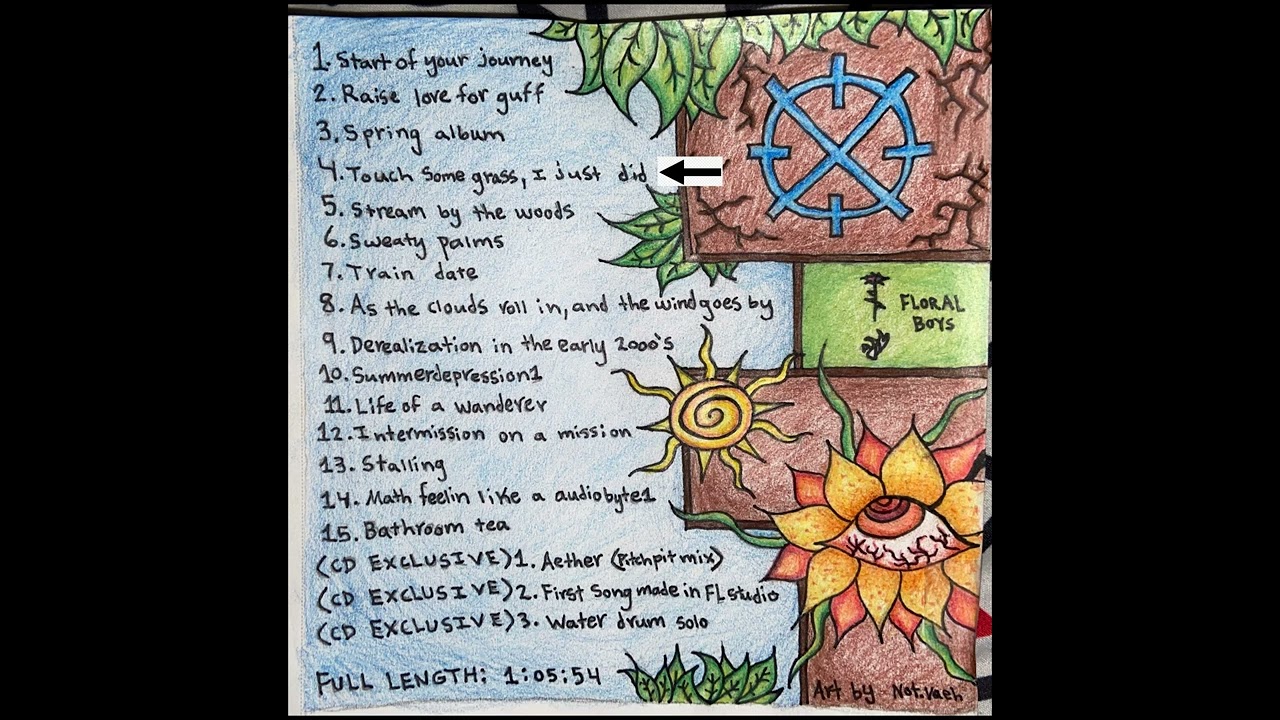 1. Start of your journey
2. Raise love for guff
3. Spring album
4. Touch some grass, I just did
5. Stream by the woods
6. Sweaty palms
7. Train date
8. As the clouds roll in, and the wind goes by
9. Derealization in the early 2000's
10. Summerdepression1
11. Life of a wanderer
12. Intermission on a mission
13. Stalling
14. Math feelin like a audiobyte1
15. Bathroom tea
(CD EXCLUSIVE) 1. Aether (Pitchpit mix)
(CD EXCLUSIVE) 2. First Song made in FL studio
(CD EXCLUSIVE) 3. Water drum solo
FULL LENGTH: 1:05:54
FLORAL
BOYS
Art by Not.vaeh